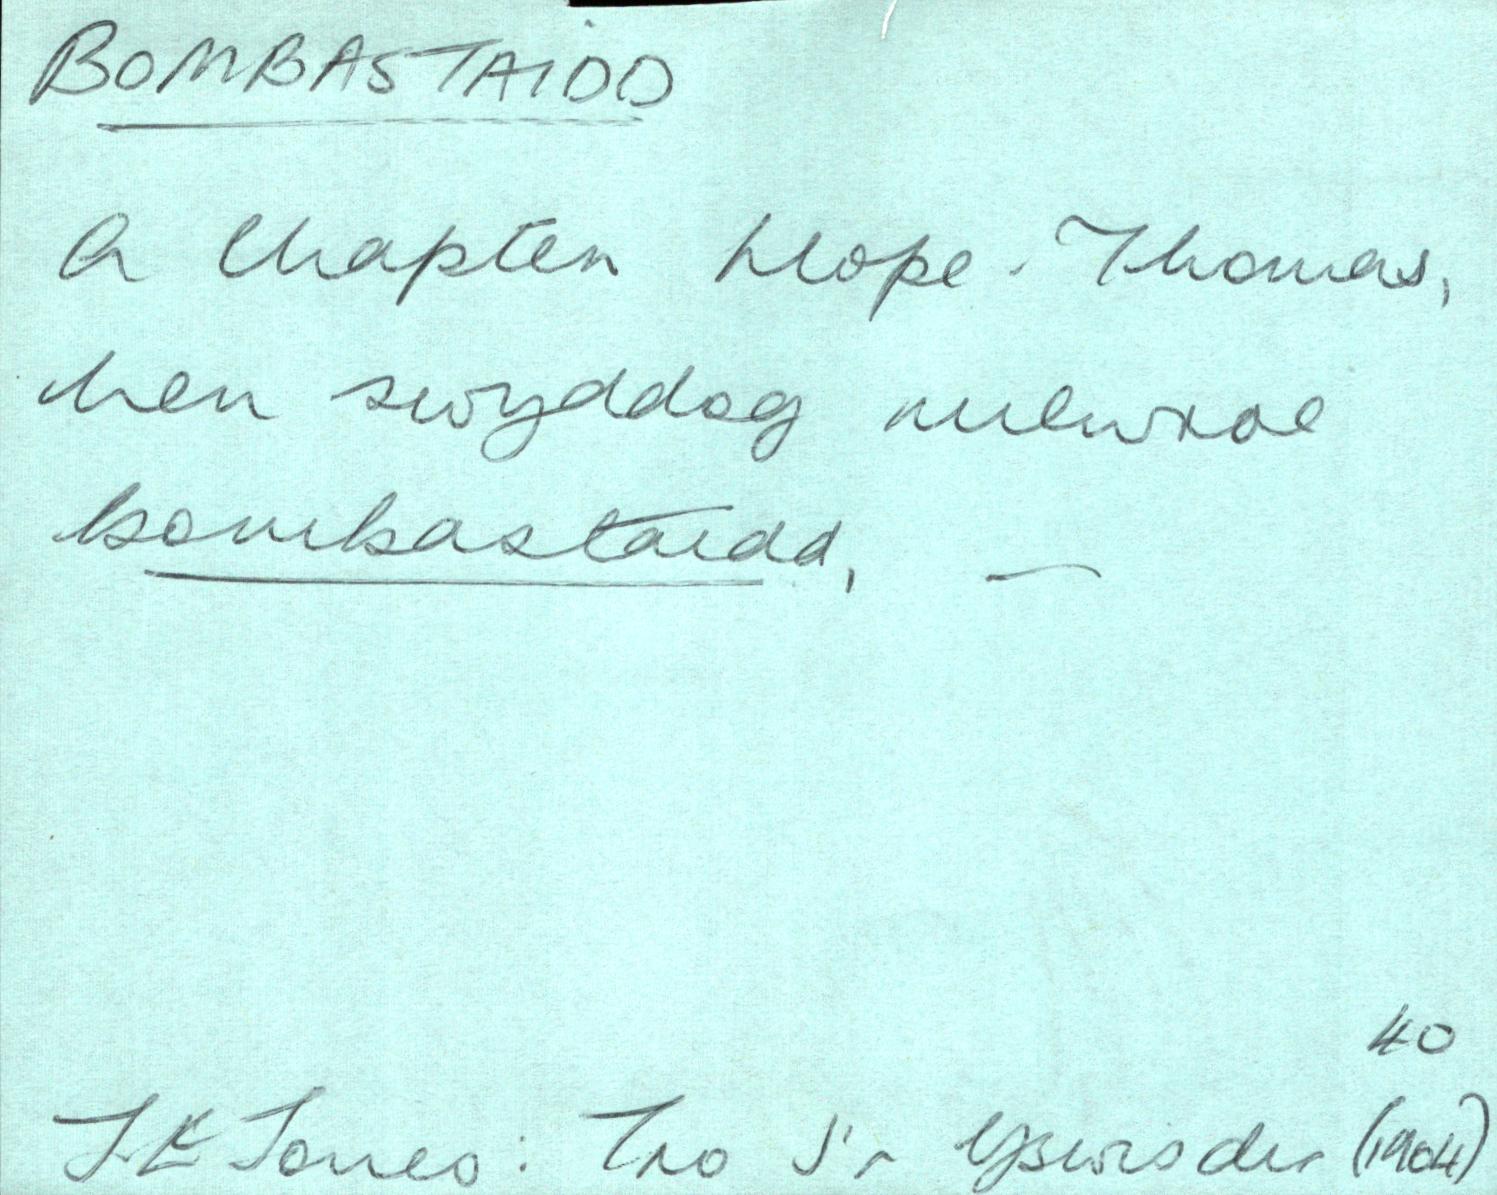 BOMBASTAIDD
A Chapten Hope-Thomas,
hen swyddog milwrol
bombastaidd, —
40
J E Jones: Tro I'r Yswisdir (1964)